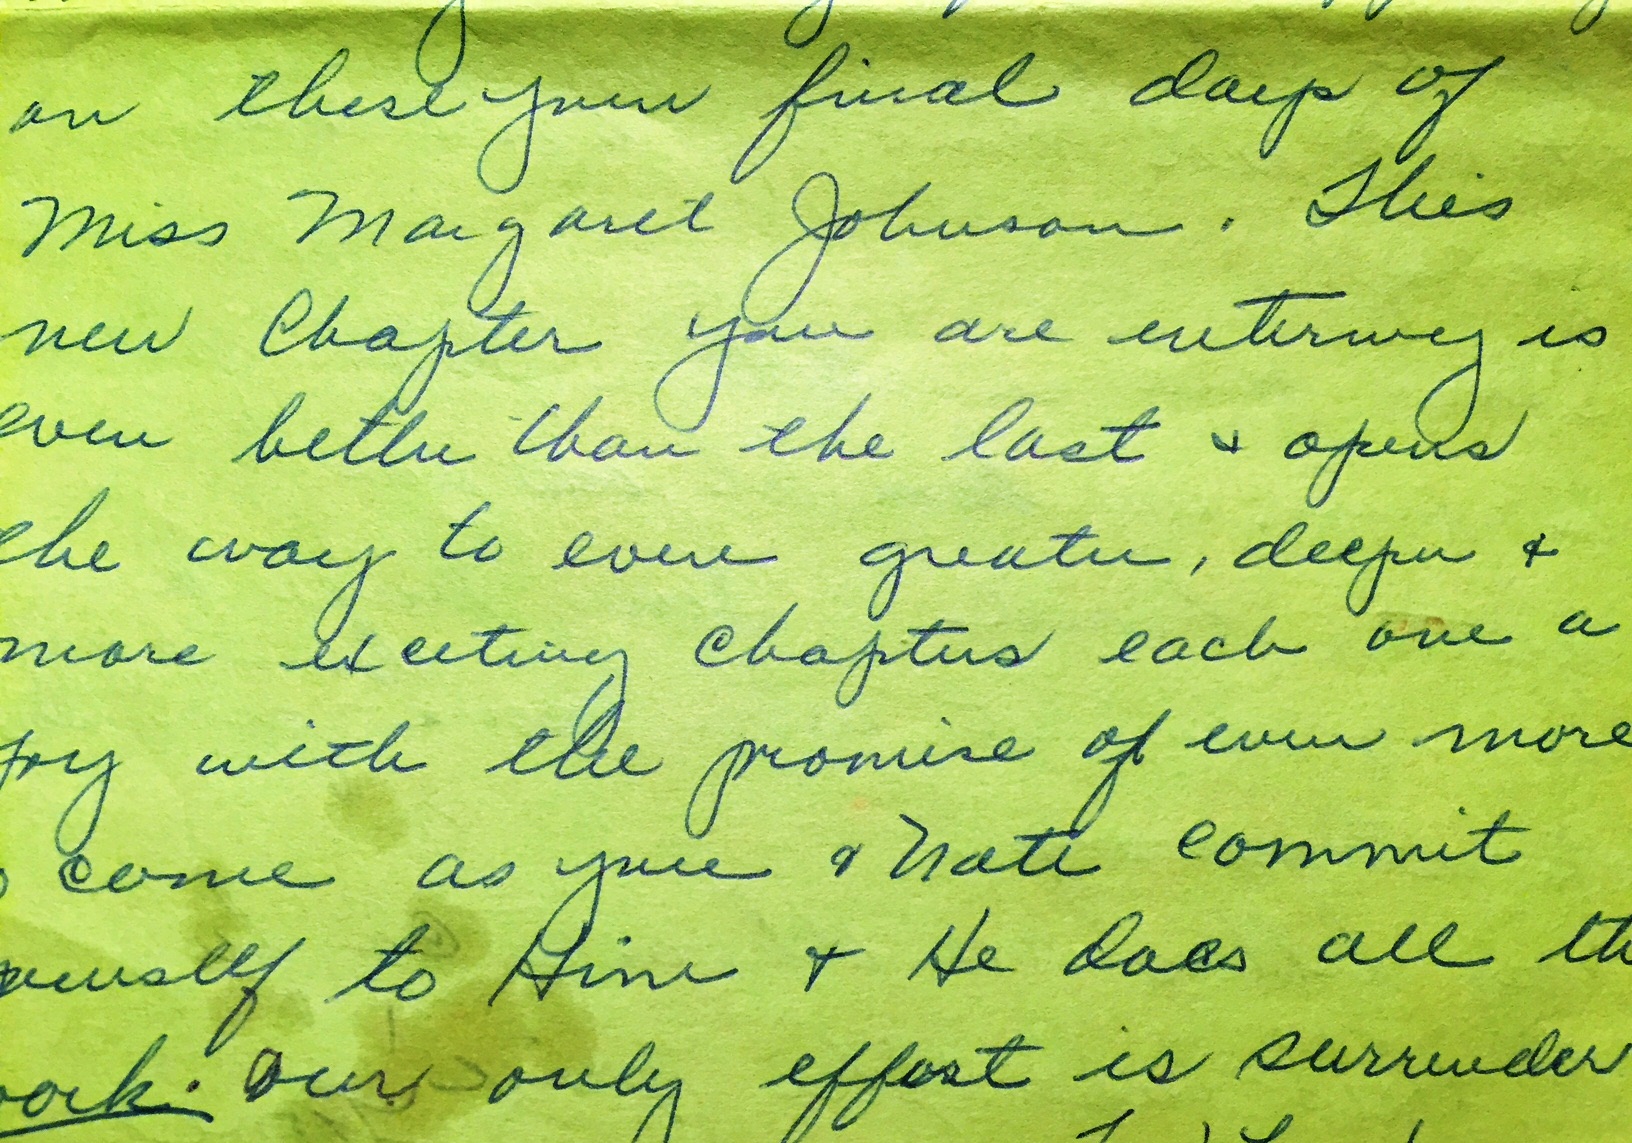 on these your final days of
Miss Margaret Johnson. This
new Chapter you are entering is
even better than the last & opens
the way to even greater, deeper &
more exciting chapters each one a
joy with the promise of even more
come as you & Nate commit
yourself to Him & He does all th
work. Our only effort is surrender